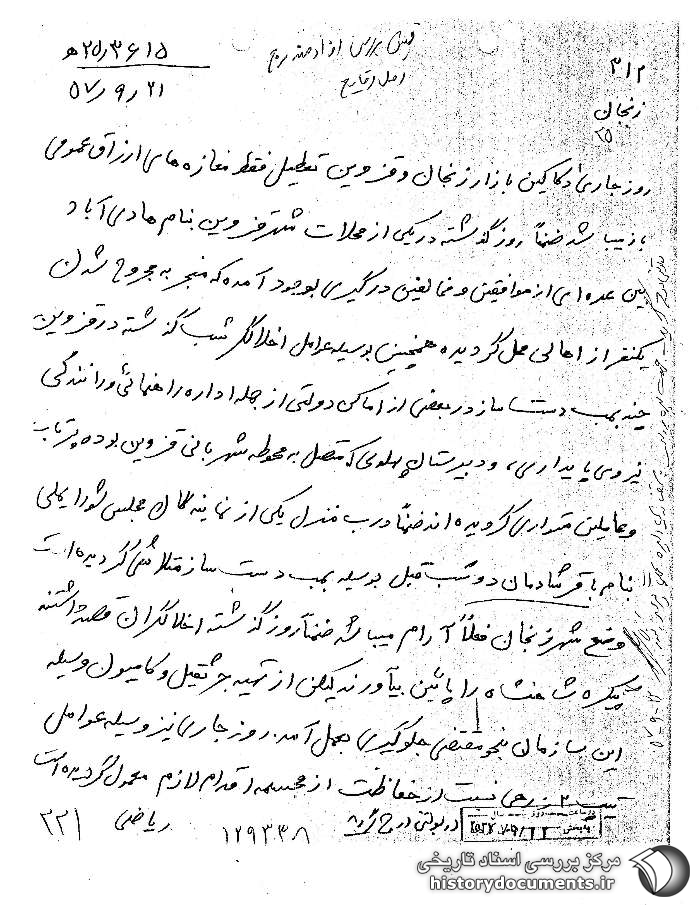 ۳۱۲
۲۵۳۶۱۵ ه‍
زنجان
۲۵
۵۷٫۹٫۲۱
روز جاری دکاکین بازار زنجان و قزوین تعطیل فقط مغازه های ارزاق عمومی
باز میباشد ضمناً روز گذشته در یکی از محلات شهر قزوین بنام هادی آباد
بین عده ای از موافقین و مخالفین درگیری بوجود آمده که منجر به مجروح شدن
یکنفر از اهالی محل گردیده همچنین بوسیله عوامل اخلالگر شب گذشته در قزوین
چند بمب دست ساز در بعضی از اماکن دولتی از جمله اداره راهنمائی و رانندگی
نیروی پایداری، و دبیرستان پهلوی که متصل به محوطه شهربانی قزوین بوده پرتاب
و عاملین متواری گردیده اند ضمناً درب منزل یکی از نمایندگان مجلس شورایملی
بنام باقر شادمان دو شب قبل بوسیله بمب دست ساز متلاشی گردیده است
وضع شهر زنجان فعلاً آرام میباشد ضمناً روز گذشته اخلالگران قصد داشتند
پیکره شاهنشاه را پائین بیآورند لیکن از تهیه جرثقیل و کامیون وسیله
این سازمان بنحو مقتضی جلوگیری بعمل آمد. روز جاری نیز وسیله عوامل
تیپ ۲ زرهی نسبت از حفاظت از مجسمه اقدام لازم معمول گردیده است
در بولتن درج گردد
۱۲۹۳۳۸
ریاضی
۳۳۱
مرکز بررسی اسناد تاریخی
historydocuments.ir